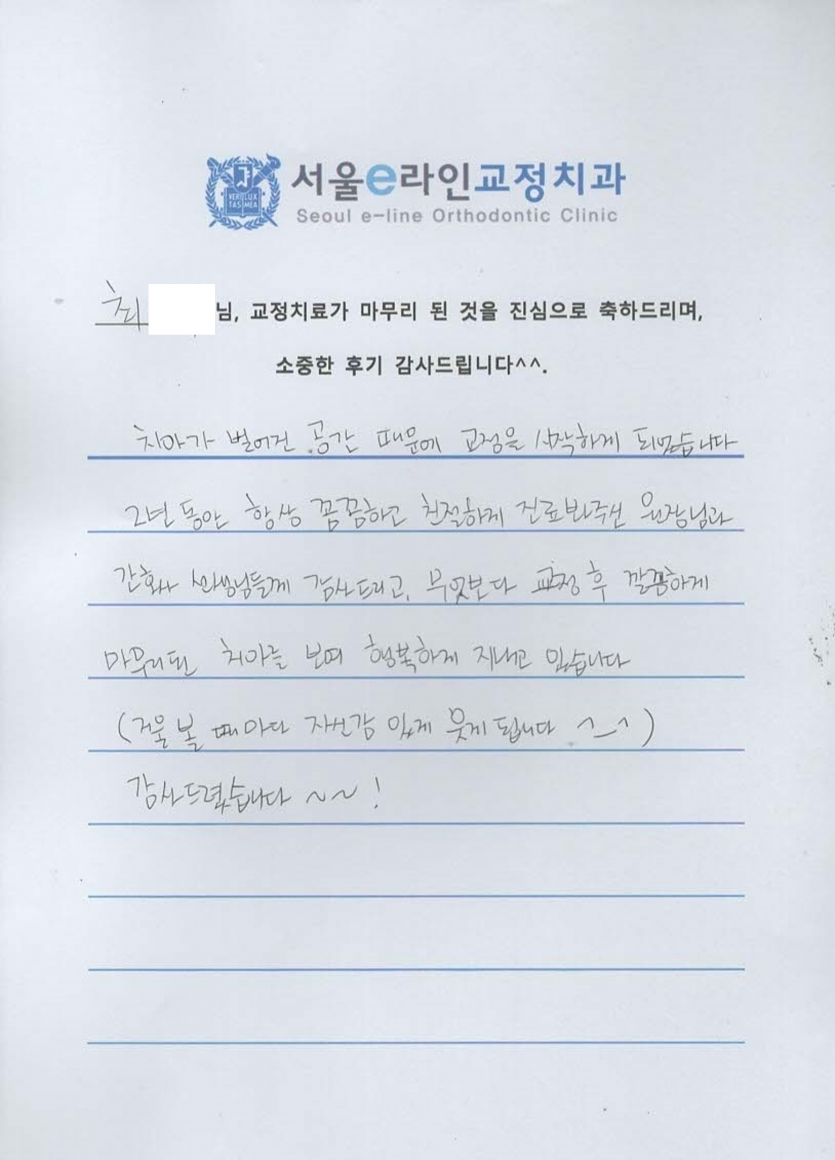 VERI LUX TAS MEA
서울e라인교정치과
Seoul e-line Orthodontic Clinic
최 님, 교정치료가 마무리 된 것을 진심으로 축하드리며,
소중한 후기 감사드립니다^^.
치아가 벌어진 공간 때문에 교정을 시작하게 되었습니다
2년 동안 항상 꼼꼼하고 친절하게 진료봐주신 원장님과
간호사 선생님들께 감사드리고, 무엇보다 교정 후 깔끔하게
마무리된 치아를 보며 행복하게 지내고 있습니다
(거울 볼 때마다 자신감 있게 웃게 됩니다 ^_^)
감사드렸습니다 ~~!